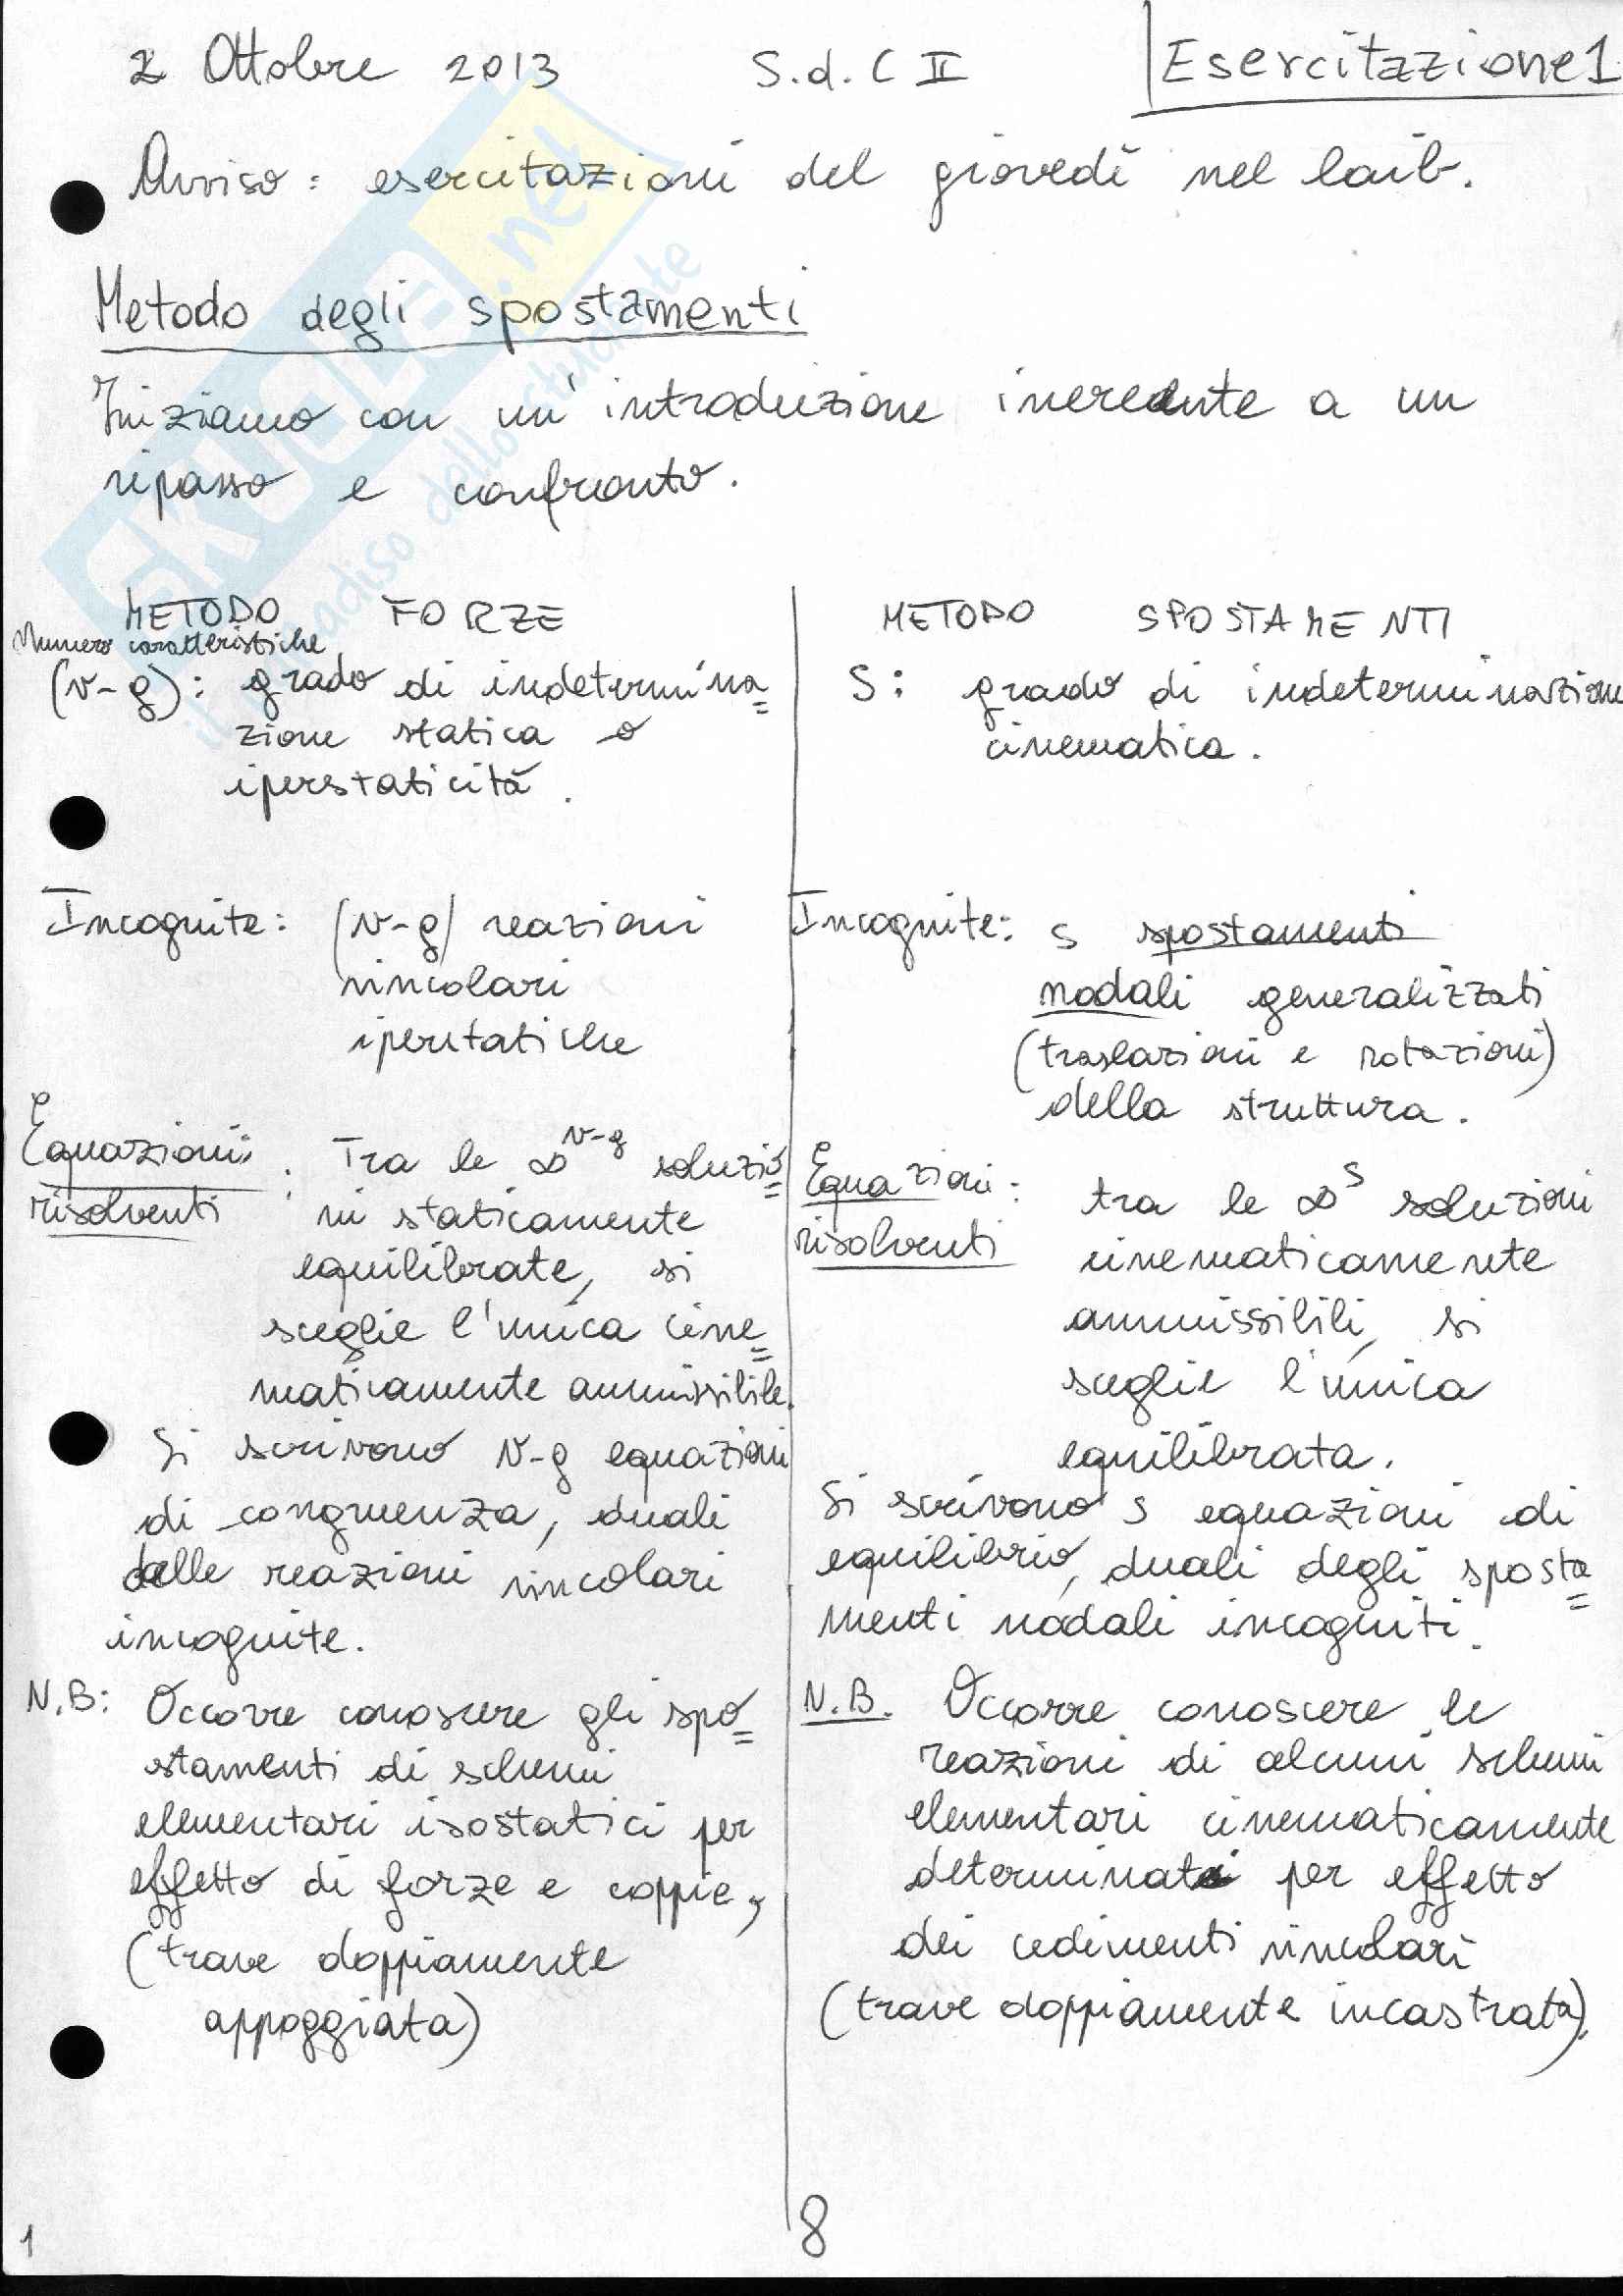 2 Ottobre 2013 S.d.C II Esercitazzione 1
Avviso: esercitazioni del giovedì nel laib.
Metodo degli spostamenti
Iniziamo con un'introduzione inerente a un
ripasso e confronto.
METODO FORZE
Numero caratteristiche
(v-g): grado di indetermina=
zione statica o
iperstaticità.
Incognite: (v-g) reazioni
vincolari
iperstatiche
Equazioni
risolventi : Tra le ∞^v-g soluzio=
ni staticamente
equilibrate, si
sceglie l'unica cine=
maticamente ammissibile.
Si scrivono v-g equazioni
di congruenza, duali
delle reazioni vincolari
incognite.
N.B: Occorre conoscere gli spo=
stamenti di schemi
elementari isostatici per
effetto di forze e coppie,
(trave doppiamente
appoggiata)
METODO SPOSTAMENTI
S: grado di indeterminazione
cinematica.
Incognite: s spostamenti
nodali generalizzati
(traslazioni e rotazioni)
della struttura.
Equazioni
risolventi : tra le ∞^s soluzioni
cinematicamente
ammissibili, si
sceglie l'unica
equilibrata.
Si scrivono s equazioni di
equilibrio, duali degli sposta=
menti nodali incogniti.
N.B. Occorre conoscere le
reazioni di alcuni schemi
elementari cinematicamente
determinati per effetto
dei cedimenti vincolari
(trave doppiamente incastrata).
1
8
SKUOLA.net
il paradiso dello studente